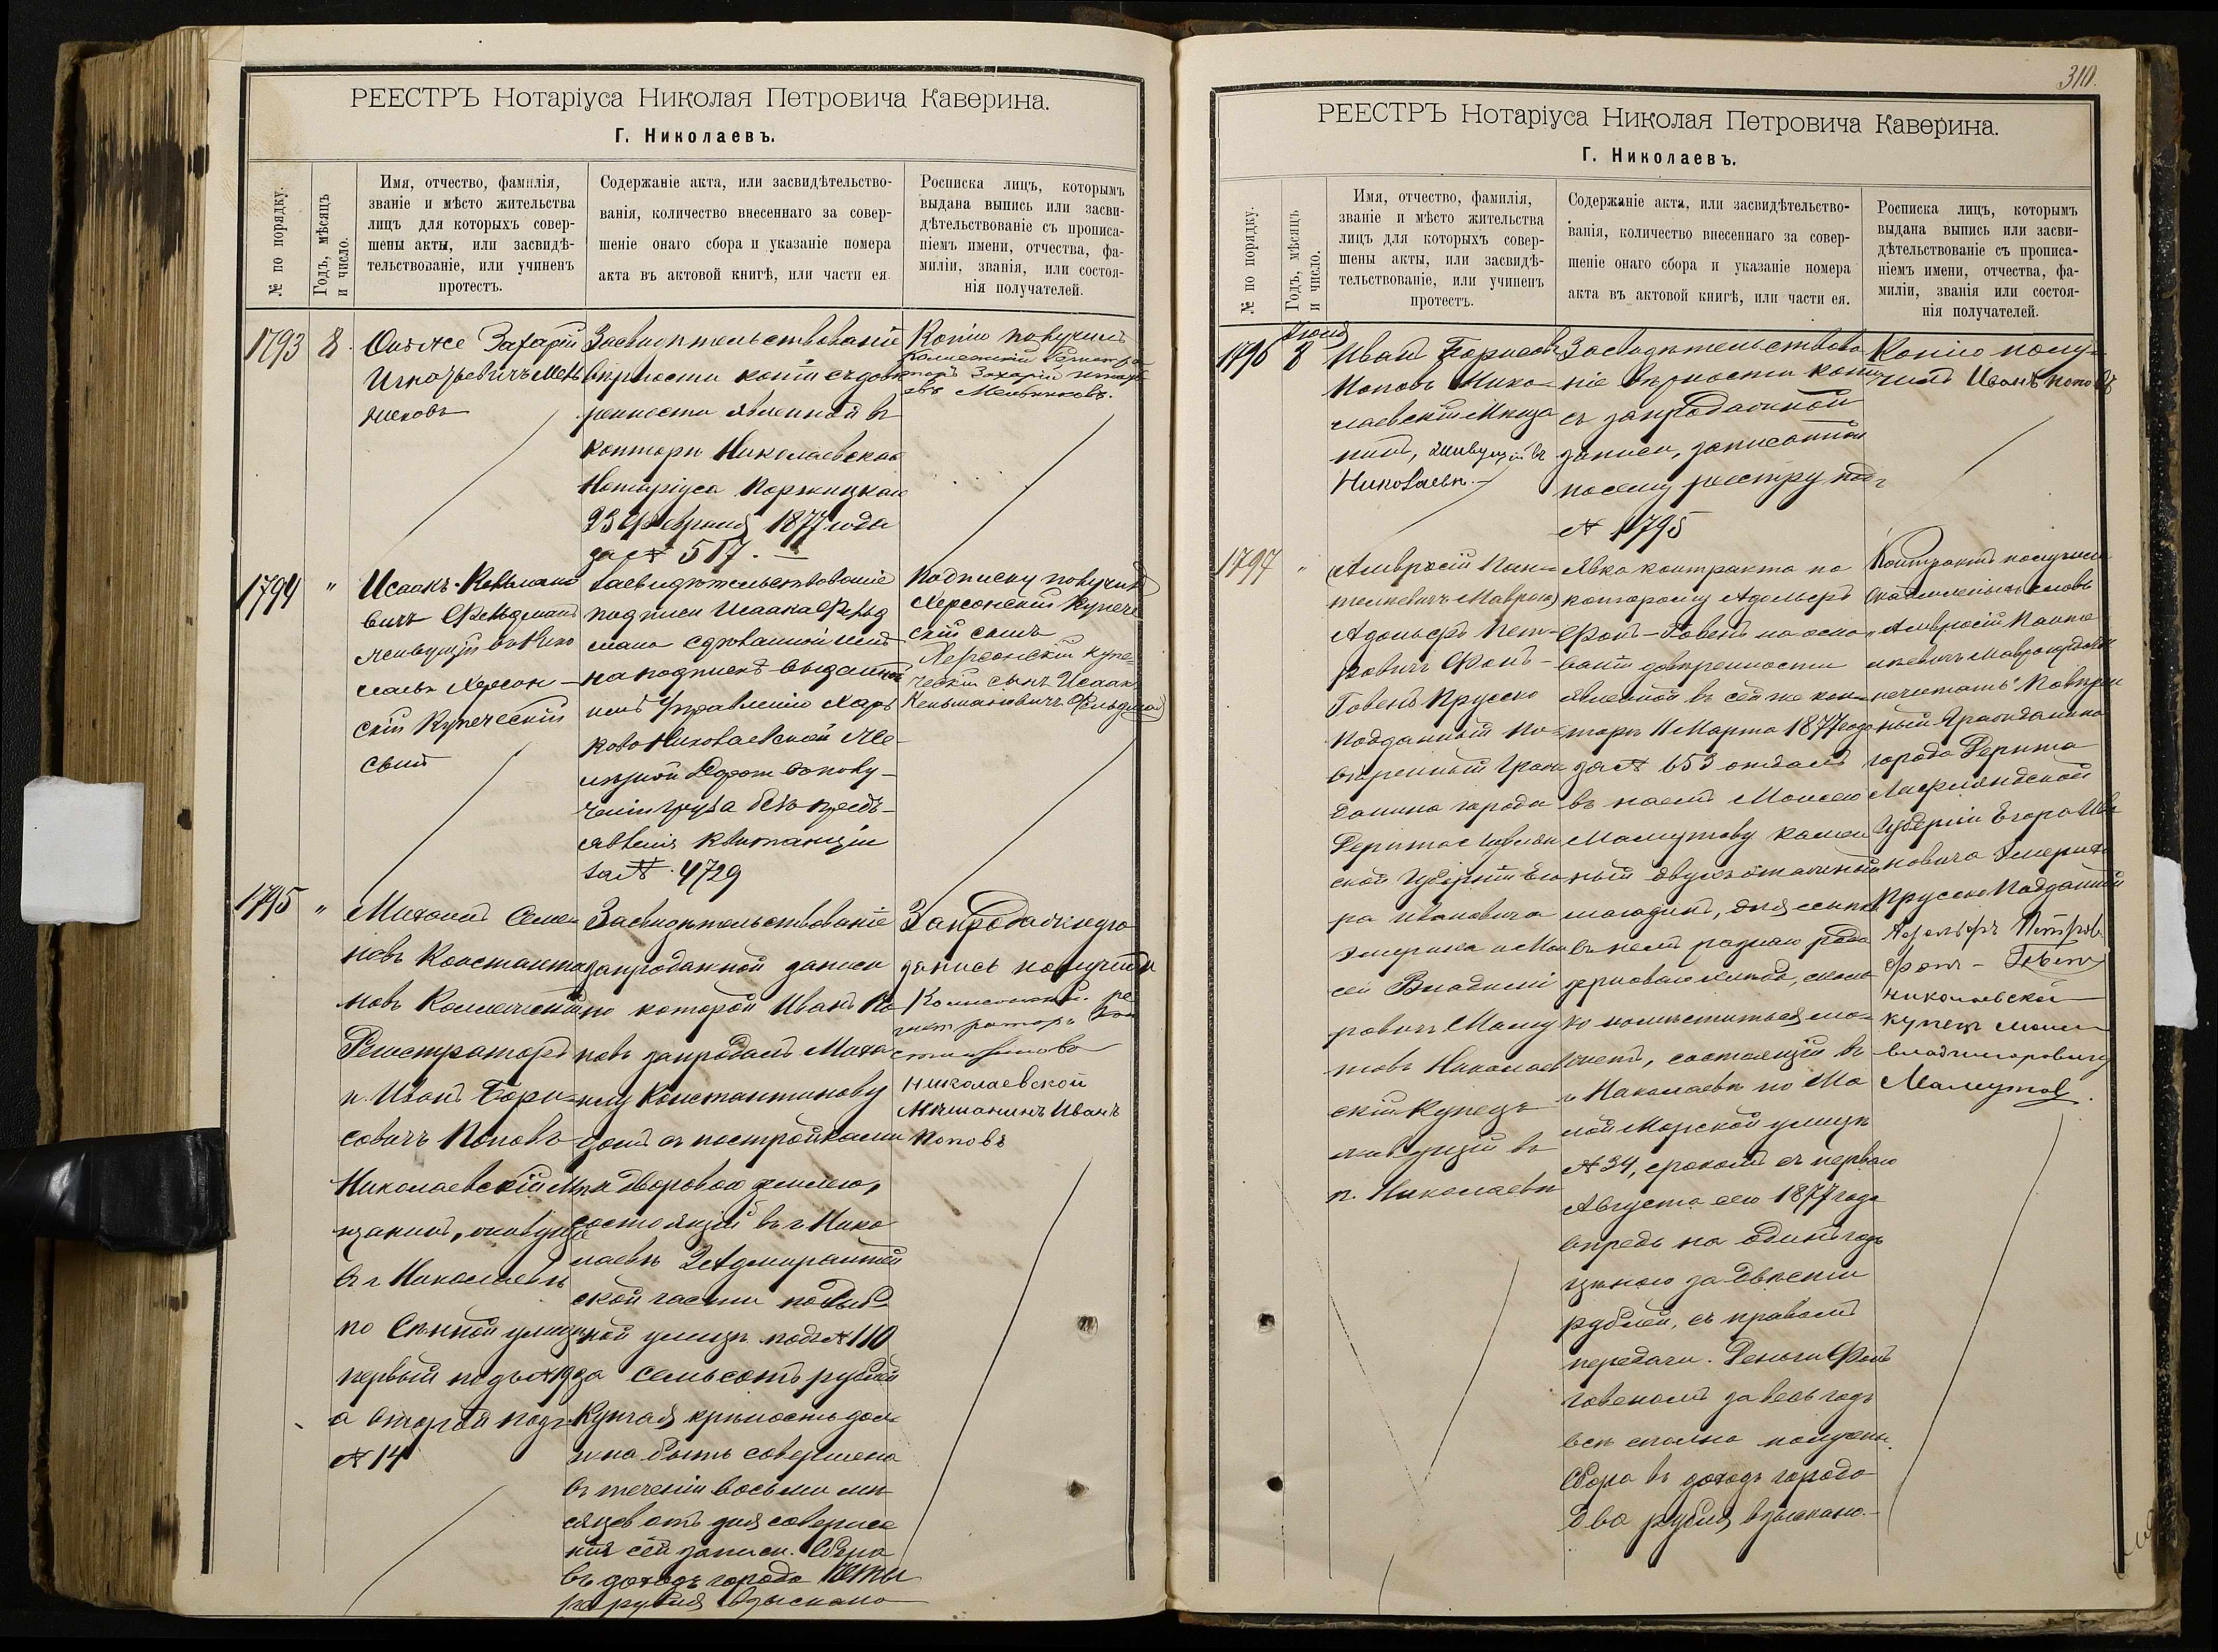 РЕЕСТРЪ Нотаріуса Николая Петровича Каверина.
Г. Николаевъ.
№ по порядку.
Годъ, мѣсяцъ
и число.
Имя, отчество, фамилія,
званіе и мѣсто жительства
лицъ для которыхъ совер-
шены акты, или засвидѣ-
тельствованіе, или учиненъ
протестъ.
Содержаніе акта, или засвидѣтельство-
ванія, количество внесеннаго за совер-
шеніе онаго сбора и указаніе номера
акта въ актовой книгѣ, или части ея.
Росписка лицъ, которымъ
выдана выпись или засви-
дѣтельствованіе съ прописа-
ніемъ имени, отчества, фа-
миліи, званія, или состоя-
нія получателей.
1793
8.
Онъ же Захарій
Игнатьевичъ Мель
никовъ
Засвидѣтельствованіе
вѣрности копіи съ довѣ
ренности явленной въ
конторѣ Николаевскаго
Нотаріуса
23 Февраля 1877 года
за № 517. —
Копію получилъ
Коллежскій Регистра
торъ Захарій Игнать
евъ Мельниковъ.
1794
"
Исаакъ
вичъ Фельдманъ
живущій въ Нико
лаевѣ Херсон-
скій Купеческій
сынъ
Засвидѣтельствованіе
подписи Исаака Фельд
мана сдѣланной имъ
на подпискѣ выданной
имъ Управленію Харь
ково Николаевской Же-
лѣзной Дороги о полу-
ченіи груза безъ предъ-
явленія квитанціи
за № 4729
Подписку получилъ
Херсонскій Купече
скій сынъ
Херсонскій купе=
ческій сынъ Исаакъ
Фельдманъ
1795
"
Михаилъ Семе-
новъ Константи
новъ Коллежскій
Регистраторъ
и Иванъ Бори=
совичъ Поповъ
Николаевскій Мѣ
щанинъ, живущіе
въ г Николаевѣ
по Сѣнной улицѣ
первый подъ № 19
а второй подъ
№ 14
Засвидѣтельствованіе
запродажной записи
по которой Иванъ По
повъ запродалъ Миха
илу Константинову
домъ съ постройками
и дворовою землею,
состоящій въ г Нико
лаевѣ 2 Адмиралтей
ской части по
ной улицѣ подъ № 110
за семьсотъ рублей
Купчая крѣпость дол
жна быть совершена
въ теченіи восьми мѣ
сяцевъ отъ дня соверше
нія сей записи. Сбора
въ доходъ города четы
ре рубля взыскано
Запродажную
запись получили
Коллежскій ре
гистраторъ Кон
стантиновъ
Николаевской
Мѣщанинъ Иванъ
Поповъ
310.
РЕЕСТРЪ Нотаріуса Николая Петровича Каверина.
Г. Николаевъ.
№ по порядку.
Годъ, мѣсяцъ
и число.
Имя, отчество, фамилія,
званіе и мѣсто жительства
лицъ для которыхъ совер-
шены акты, или засвидѣ-
тельствованіе, или учиненъ
протестъ.
Содержаніе акта, или засвидѣтельство-
ванія, количество внесеннаго за совер-
шеніе онаго сбора и указаніе номера
акта въ актовой книгѣ, или части ея.
Росписка лицъ, которымъ
выдана выпись или засви-
дѣтельствованіе съ прописа-
ніемъ имени, отчества, фа-
миліи, званія или состоя-
нія получателей.
1796
8
Иванъ Борисовъ
Поповъ Нико-
лаевскій Мѣща
нинъ, живущій въ
Николаевѣ.—
Засвидѣтельствова
ніе вѣрности копіи
съ запродажной
записи, записанной
по сему реестру подъ
№ 1795
Копію полу=
чилъ Иванъ Поповъ
1797
"
(Амвросій Пан=
телевичъ Мавро)
Адольфъ Пет-
ровичъ Фонъ-
Говенъ Прусско
подданный по-
вѣренный Граж
данина города
Дерпта
ской Губерніи Его
ра Ивановича
Эмериха и Мои
сей Владимі
ровичъ Маму
товъ Николаев
скій Купецъ
живущій въ
г. Николаевѣ
Явка контракта по
которому Адольфъ
Фонъ-Говенъ на осно
ваніи довѣренности
явленной въ сей же кон-
торѣ 11 Марта 1877 года
за № 653 отдалъ
въ наемъ Моисею
Мамутову камен
ный двухъэтажный
магазинъ, для ссыпки
въ немъ разнаго рода
зерноваго хлѣба, сколь
ко помѣститься мо-
жетъ, состоящій въ
г Николаевѣ по Ма
лой Морской улицѣ
№ 34, срокомъ съ перваго
Августа сего 1877 года
впредь на одинъ годъ
цѣною за двѣсти
рублей, съ правомъ
передачи. Деньги Фонъ
Говеномъ за весь годъ
всѣ сполна получены.
Сбора въ доходъ города
Два рубля взыскано.—
Контрактъ получили
словъ
"Амвросій Панте
левичъ
не читать". Повѣрен
ный Гражданина
города Дерпта
Лифляндской
Губерніи Егора Ива
новича Эмериха
Прусско Подданный
Адольфъ Петров.
Фонъ-Говенъ
Николаевскій
купецъ Моисей
Владимировичъ
Мамутов.